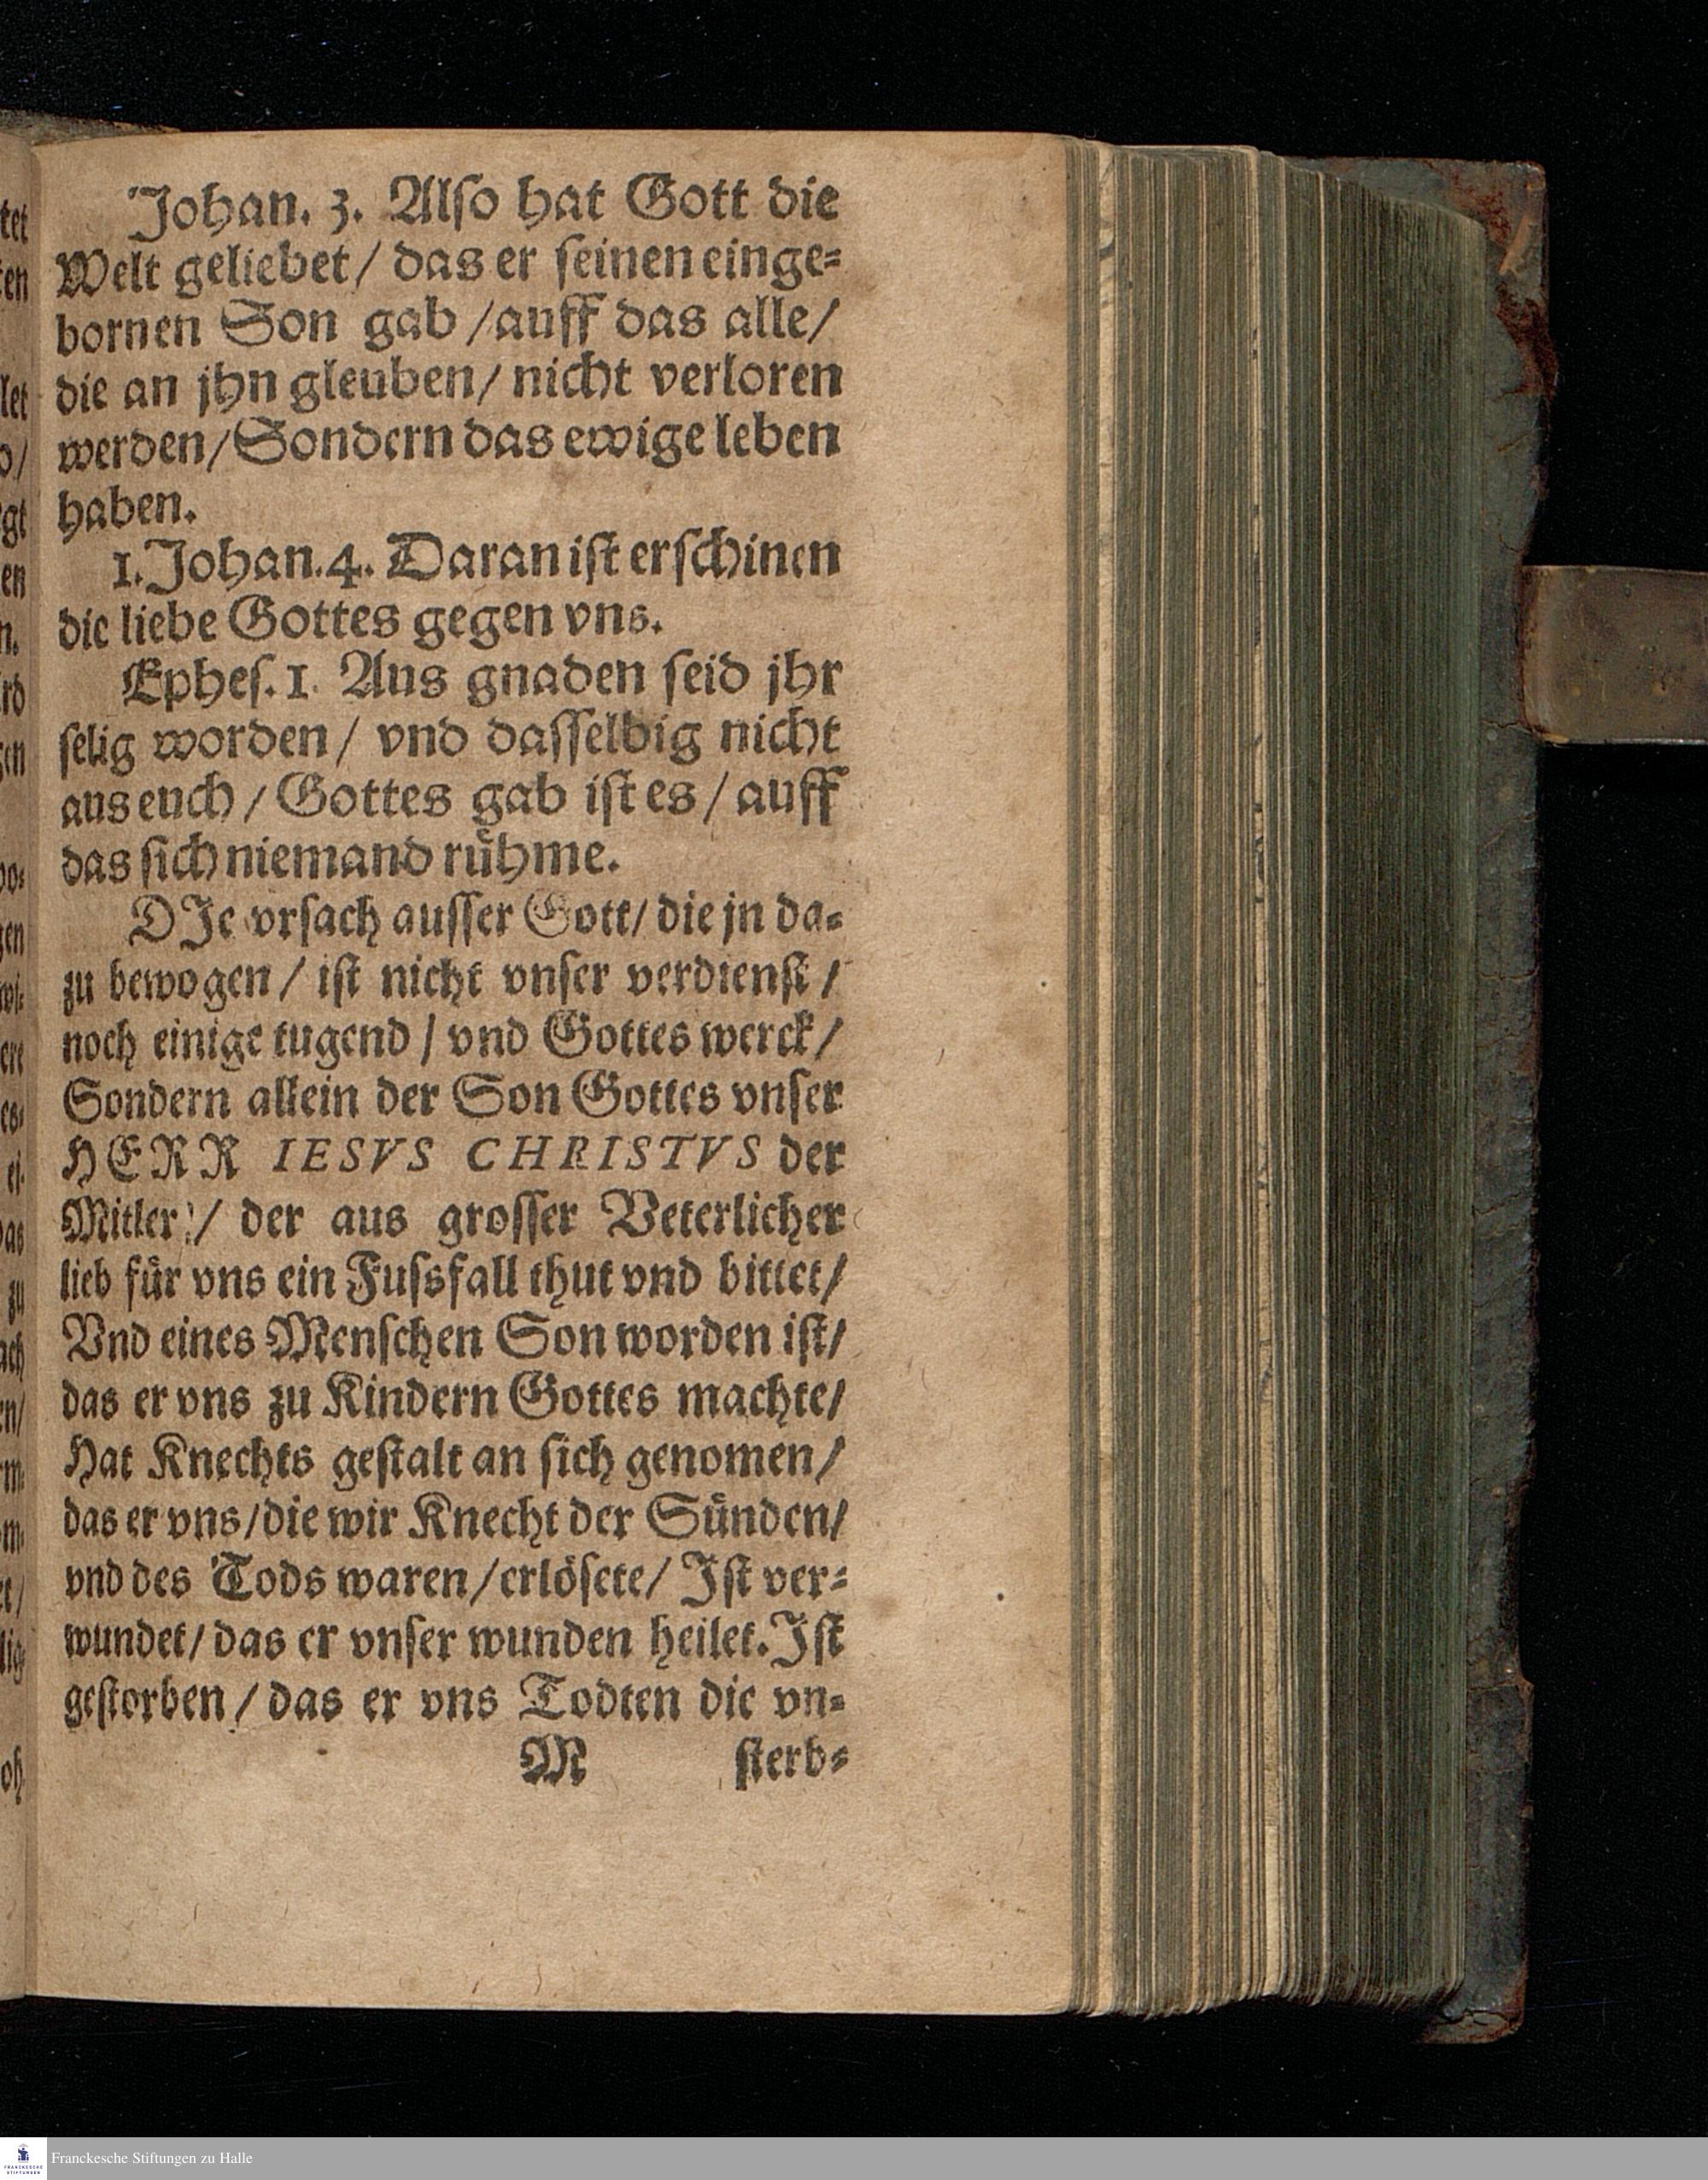 Johan. 3. Also hat Gott die
Welt geliebet / das er seinen einge-
bornen Son gab / auff das alle /
die an jhn gleuben / nicht verloren
werden / Sondern das ewige leben
haben.
1. Johan. 4. Daran ist erschinen
die liebe Gottes gegen vns.
Ephes. 1. Aus gnaden seid jhr
selig worden / vnd dasselbig nicht
aus euch / Gottes gab ist es / auff
das sich niemand rühme.
DJe vrsach ausser Gott / die jn da-
zu bewogen / ist nicht vnser verdienst /
noch einige tugend / vnd Gottes werck /
Sondern allein der Son Gottes vnser
HERR IESVS CHRISTVS der
Mitler / der aus grosser Veterlicher
lieb für vns ein Fussfall thut vnd bittet /
Vnd eines Menschen Son worden ist /
das er vns zu Kindern Gottes machte /
Hat Knechts gestalt an sich genomen /
das er vns / die wir Knecht der Sünden /
vnd des Tods waren / erlösete / Jst ver-
wundet / das er vnser wunden heilet. Jst
gestorben / das er vns Todten die vn-
M sterb-
Franckesche Stiftungen zu Halle